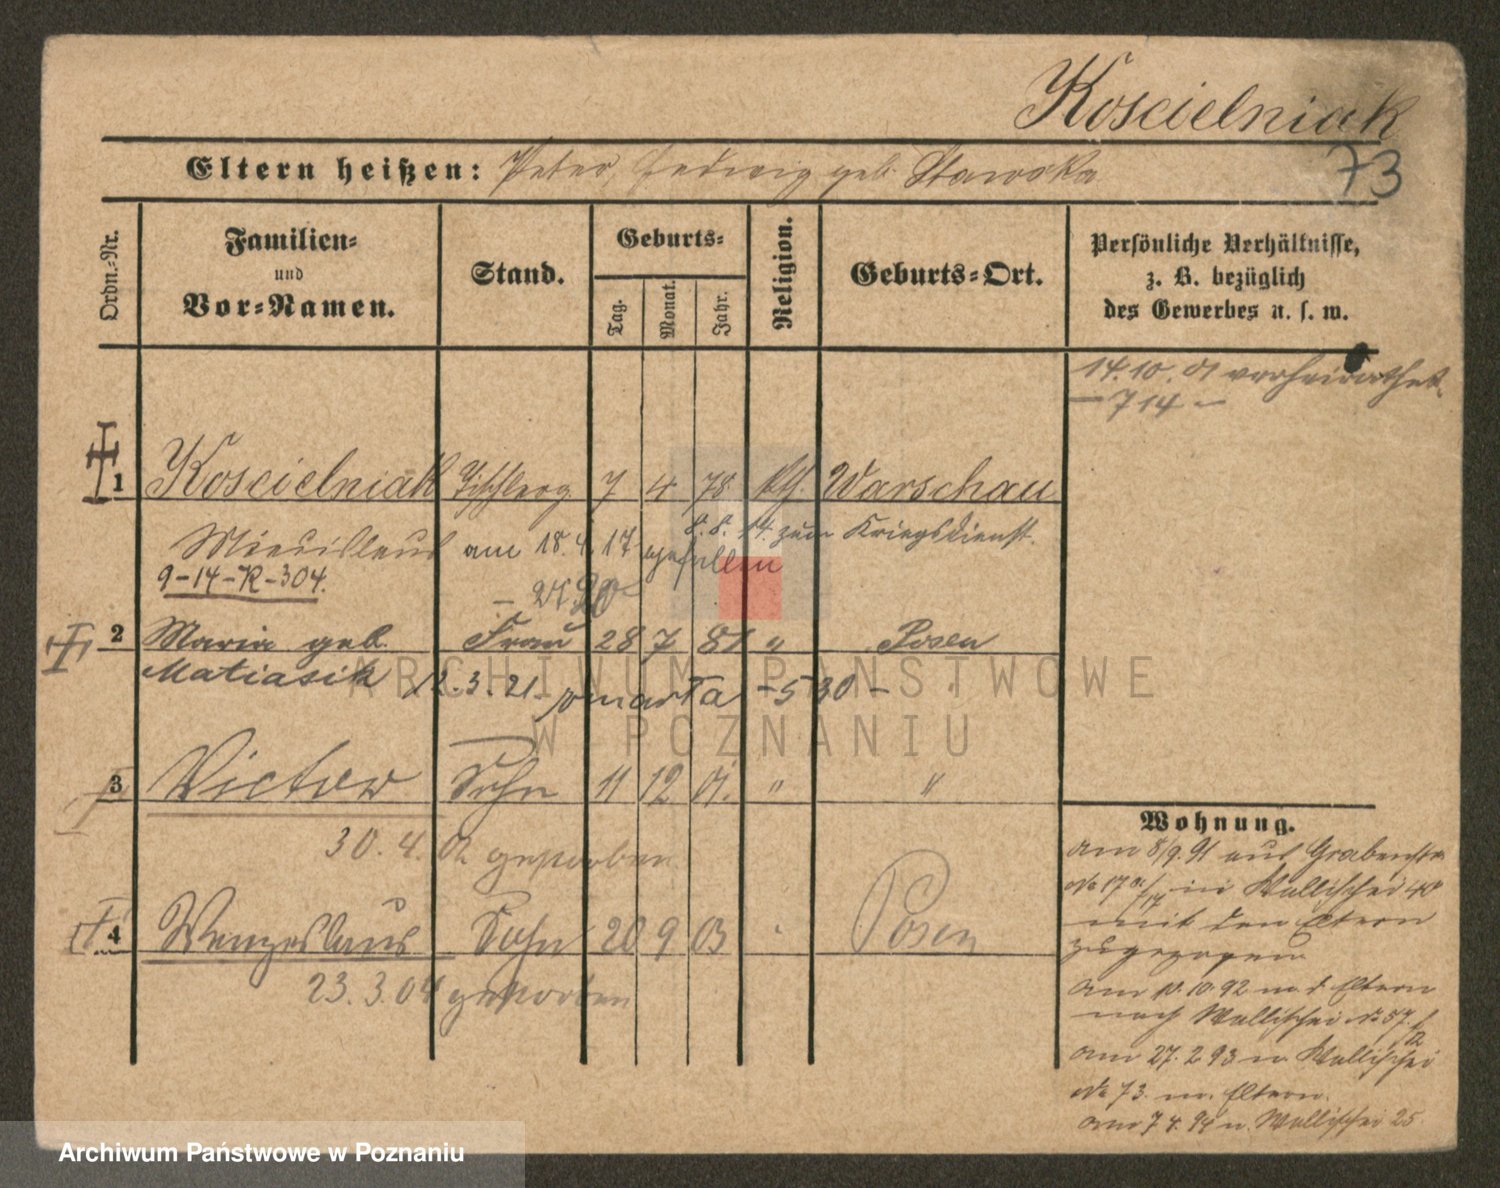 Koscielniak
73
Eltern heißen: Peter, Hedwig geb. Stawska
Ordn.-Nr.
Familien-
und
Vor-Namen.
Stand.
Geburts-
Tag.
Monat.
Jahr.
Religion.
Geburts-Ort.
Persönliche Verhältnisse,
z. B. bezüglich
des Gewerbes u. s. w.
14.10.01 verheirathet
— 714 —
1 Koscielniak Tischlerg. 7 4 78 kth Warschau
8.8.14. zum Kriegsdienst.
am 18.4.17 gefallen
9-14-K-304.
2 Maria geb. Frau 28 7 81 " Posen
Matiasik 12.3.21. zmarła -530-
3 Victor Sohn 11 12 01. " "
30.4.02 gestorben
4 Wenzeslaus Sohn 20 9 03 " Posen
23.3.04 gestorben
Wohnung.
am 8/9.91 aus Grabenstr
No 17 in Wallischei 40
mit den Eltern
zugezogen
am 10.10.92 m. d. Eltern
nach Wallischei No 37.
am 27.2.93 n. Wallischei
No 73. m. Eltern.
am 7.4.94 n. Wallischei 25
ARCHIWUM PAŃSTWOWE
W POZNANIU
Archiwum Państwowe w Poznaniu